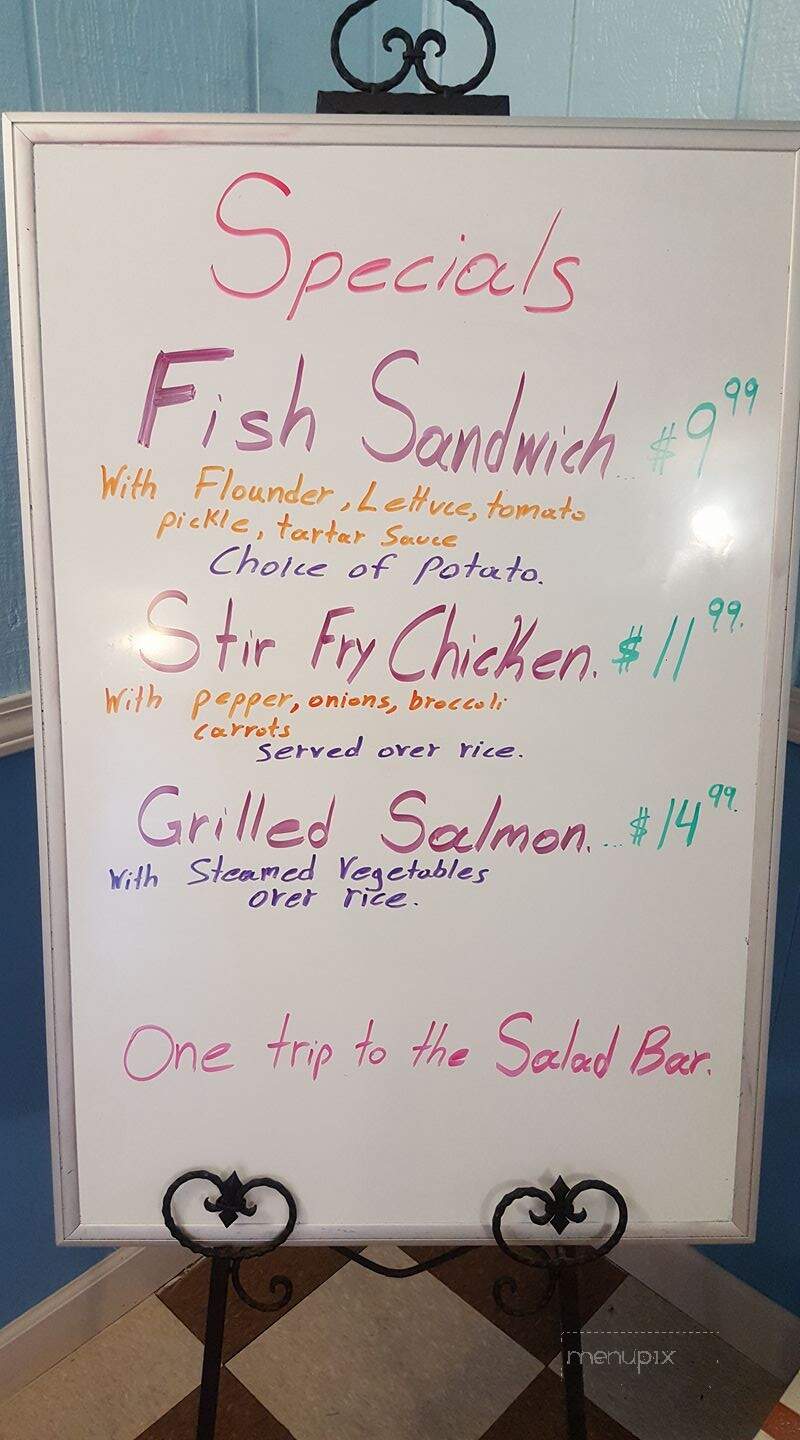 Specials
Fish Sandwich... $9.99
With Flounder, Lettuce, tomato
pickle, tartar sauce
Choice of potato.
Stir Fry Chicken. $11.99.
With pepper, onions, broccoli
carrots
served over rice.
Grilled Salmon.... $14.99.
With Steamed Vegetables
over rice.
One trip to the Salad Bar.
menupix